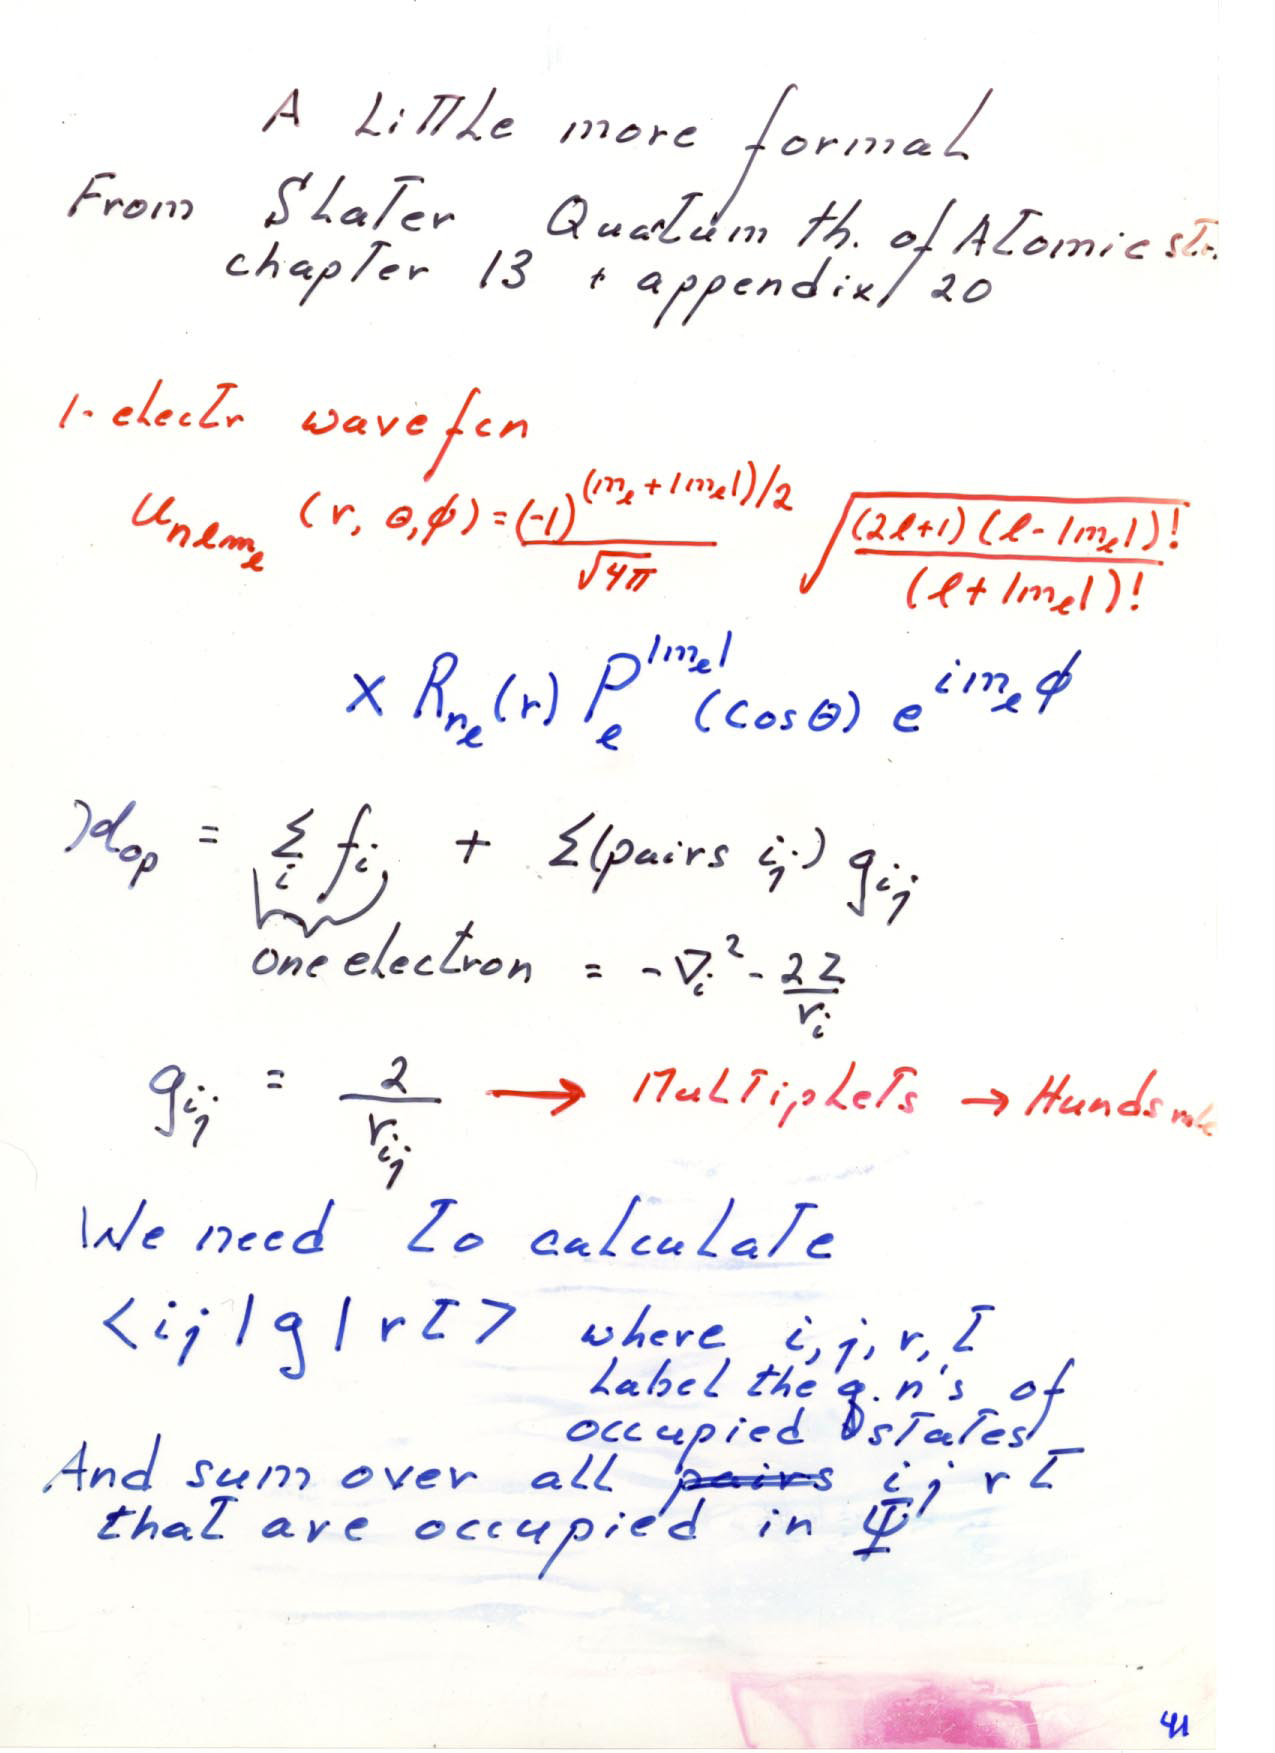 A Little more formal
From Slater Quatum th. of Atomic str.
chapter 13 + appendix 20
1-electr wavefcn
u_{nlm_l} (r, θ, φ) = \frac{(-1)^{(m_l + |m_l|)/2}}{\sqrt{4π}} \sqrt{\frac{(2l+1)(l-|m_l|)!}{(l+|m_l|)!}}
× R_{n_l}(r) P_l^{|m_l|} (cosθ) e^{i m_l φ}
H_{op} = Σ_i f_i + Σ(pairs i,j) g_{ij}
one electron = -∇_i^2 - \frac{2Z}{r_i}
g_{ij} = \frac{2}{r_{ij}} → Multiplets → Hunds rule
We need to calculate
<ij|g|rt> where i, j, r, t
Label the q.n's of
occupied states
And sum over all ~~pairs~~ i j r t
that are occupied in Ψ
41